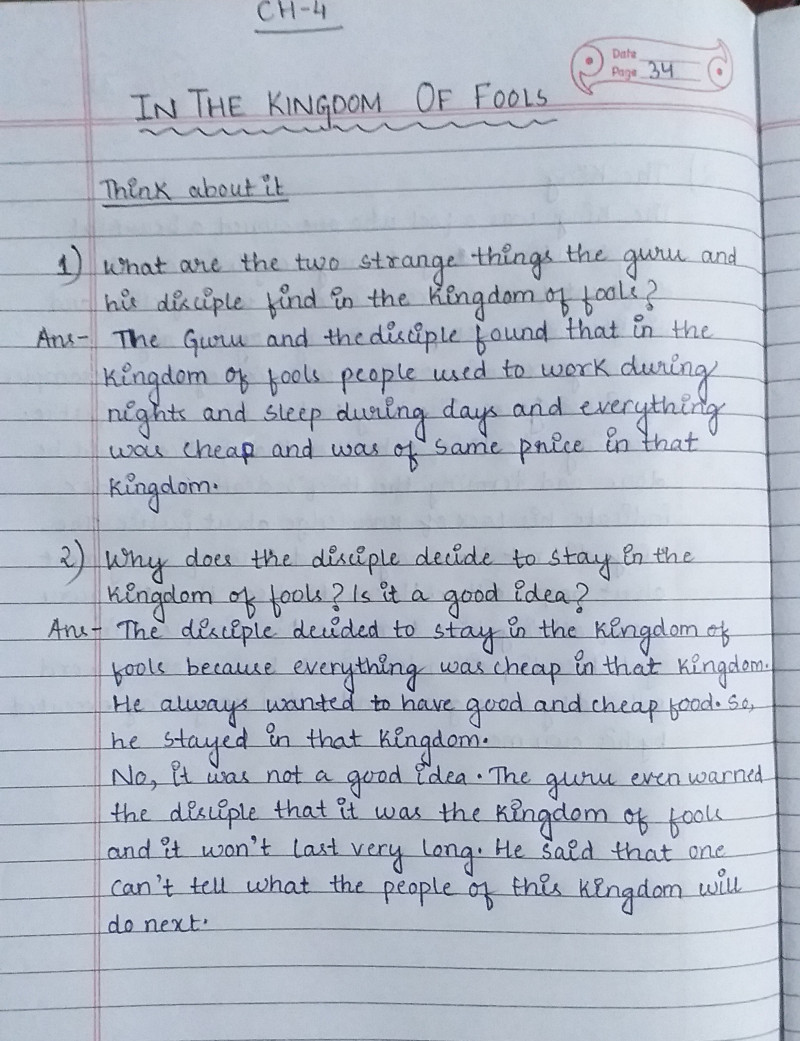 CH-4
Date
Page 34
IN THE KINGDOM OF FOOLS
Think about it
1) What are the two strange things the guru and
his disciple find in the Kingdom of fools?
Ans- The Guru and the disciple found that in the
Kingdom of fools people used to work during
nights and sleep during days and everything
was cheap and was of same price in that
Kingdom.
2) Why does the disciple decide to stay in the
Kingdom of fools? Is it a good idea?
Ans- The disciple decided to stay in the Kingdom of
fools because everything was cheap in that Kingdom.
He always wanted to have good and cheap food. So,
he stayed in that Kingdom.
No, it was not a good idea. The guru even warned
the disciple that it was the Kingdom of fools
and it won't last very long. He said that one
can't tell what the people of this Kingdom will
do next.